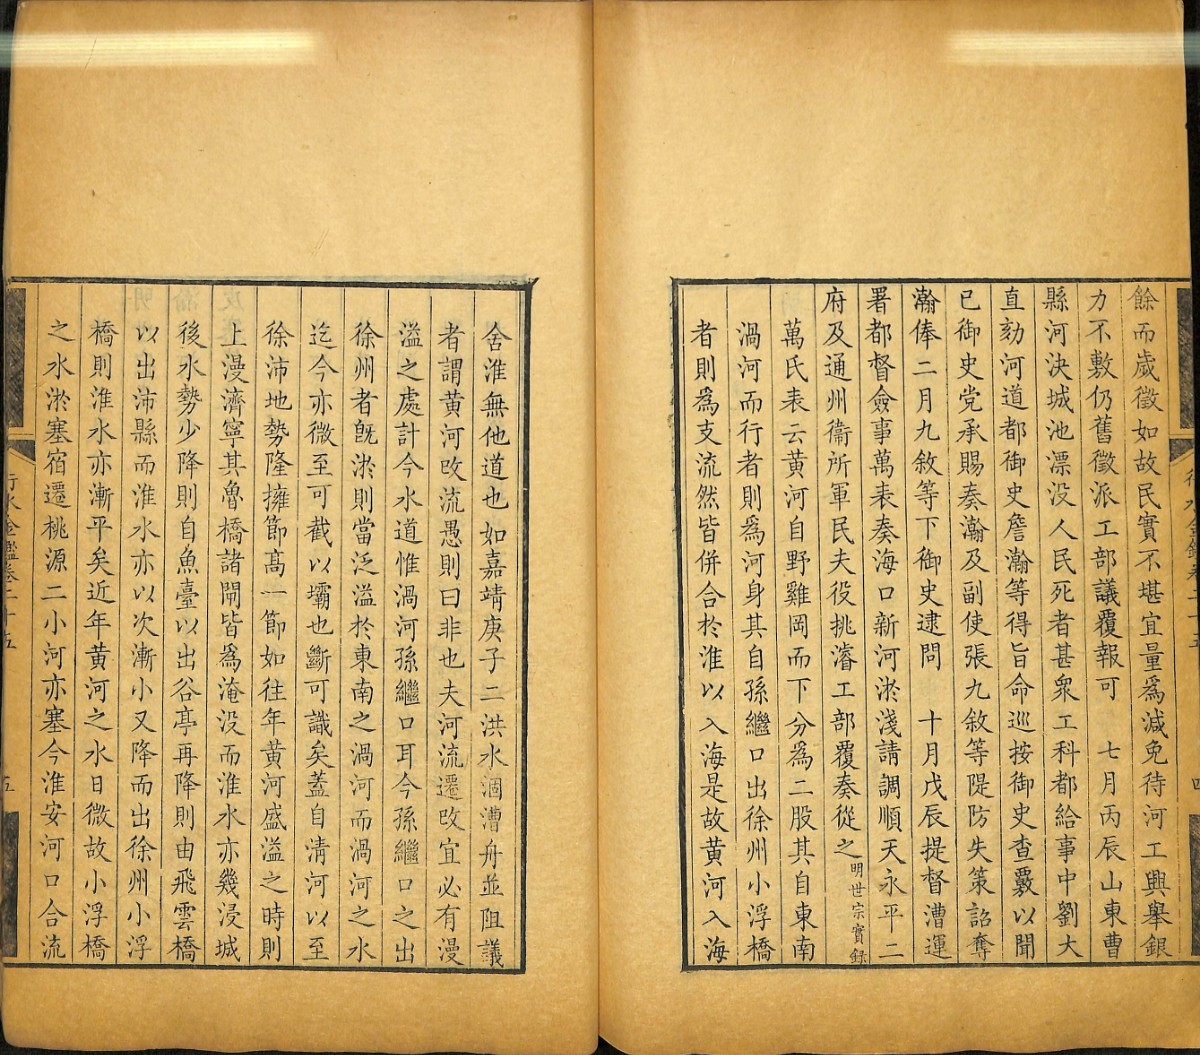 餘而歲徵如故民實不堪宜量爲減免待河工興舉銀
力不敷仍舊徵派工部議覆報可　七月丙辰山東曹
縣河決城池漂没人民死者甚衆工科都給事中劉大
直劾河道都御史詹瀚等得旨命巡按御史查覈以聞
已御史党承賜奏瀚及副使張九敘等隄防失策詔奪
瀚俸二月九敘等下御史逮問　十月戊辰提督漕運
署都督僉事萬表奏海口新河淤淺請調順天永平二
府及通州衞所軍民夫役挑濬工部覆奏從之明世宗實錄
萬氏表云黄河自野雞岡而下分爲二股其自東南
渦河而行者則爲河身其自孫繼口出徐州小浮橋
者則爲支流然皆併合於淮以入海是故黄河入海
舍淮無他道也如嘉靖庚子二洪水涸漕舟並阻議
者謂黄河改流愚則曰非也夫河流遷改宜必有漫
溢之處計今水道惟渦河孫繼口耳今孫繼口之出
徐州者旣淤則當泛溢於東南之渦河而渦河之水
迄今亦微至可截以壩也斷可識矣蓋自清河以至
徐沛地勢隆擁節高一節如往年黄河盛溢之時則
上漫濟寧其魯橋諸閘皆爲淹没而淮水亦幾浸城
後水勢少降則自魚臺以出谷亭再降則由飛雲橋
以出沛縣而淮水亦以次漸小又降而出徐州小浮
橋則淮水亦漸平矣近年黄河之水日微故小浮橋
之水淤塞宿遷桃源二小河亦塞今淮安河口合流
行水金鑑卷二十五
五